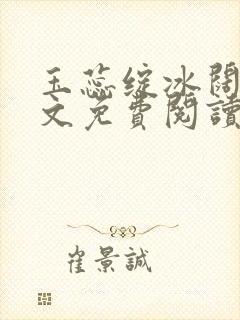 玉蕊綻冰闊
文免費閱讀
崔景誠